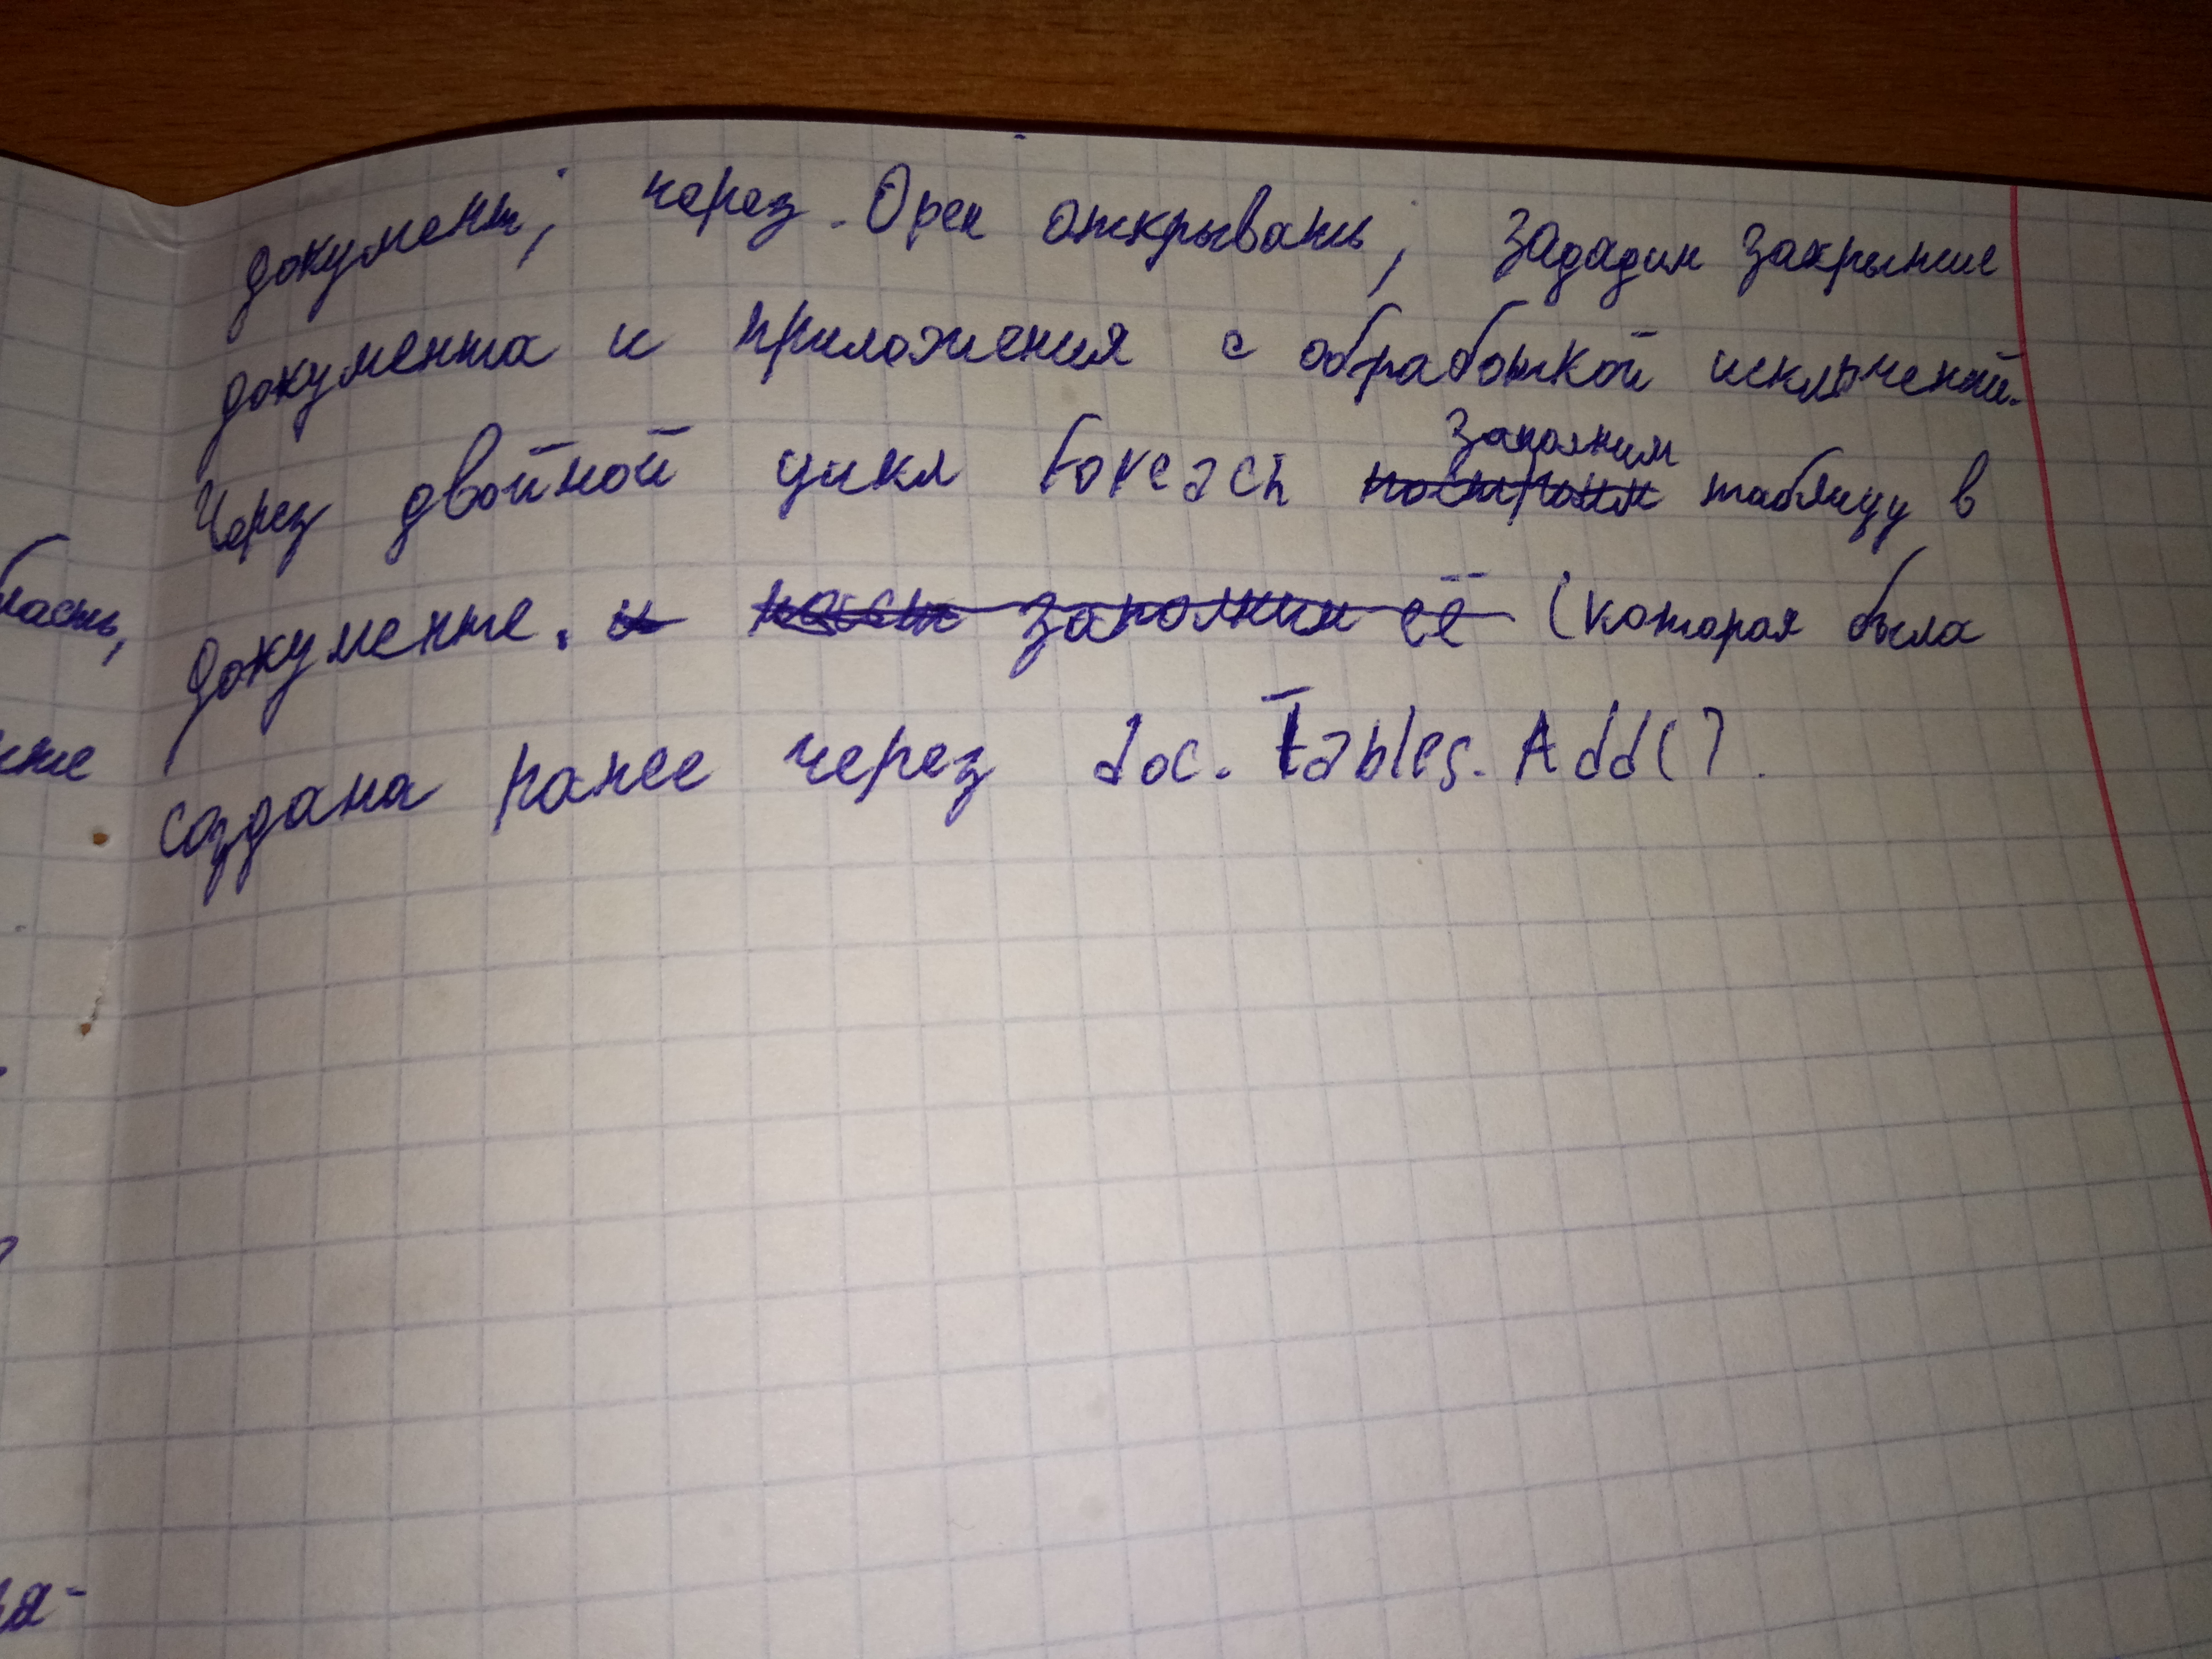 документ, через .Open открывать, зададим закрытие
документа и приложения с обработкой исключений.
Через двойной цикл foreach заполним таблицу в
документе. и заполним её (которая была
создана ранее через doc.Tables.Add().